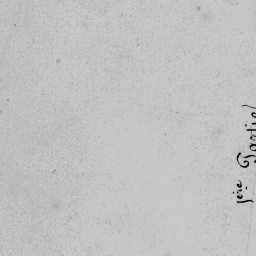 1ere Partie